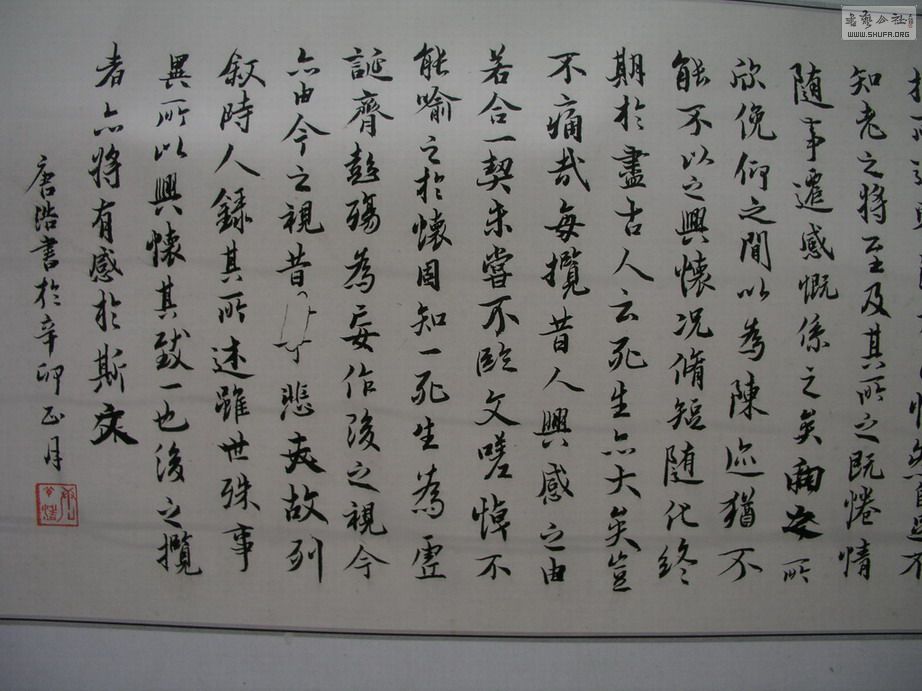 知老之将至及其所之既惓情
随事遷感慨係之矣向之所
欣俛仰之間以為陳迹猶不
能不以之興懷况脩短随化終
期於盡古人云死生亦大矣豈
不痛哉每攬昔人興感之由
若合一契未嘗不臨文嗟悼不
能喻之於懷固知一死生為虛
誕齊彭殤為妄作後之視今
亦由今之視昔悲夫故列
叙時人録其所述雖世殊事
異所以興懷其致一也後之攬
者亦將有感於斯文
唐浩書於辛卯正月
書藝公社
WWW.SHUFA.ORG